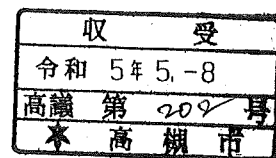 収受
令和 5年 5.-8
高議 第 202 号
★ 高槻市